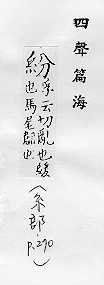 四聲篇海
紛孚云切亂也緩
也馬尾韜也
(糸部 p.290)